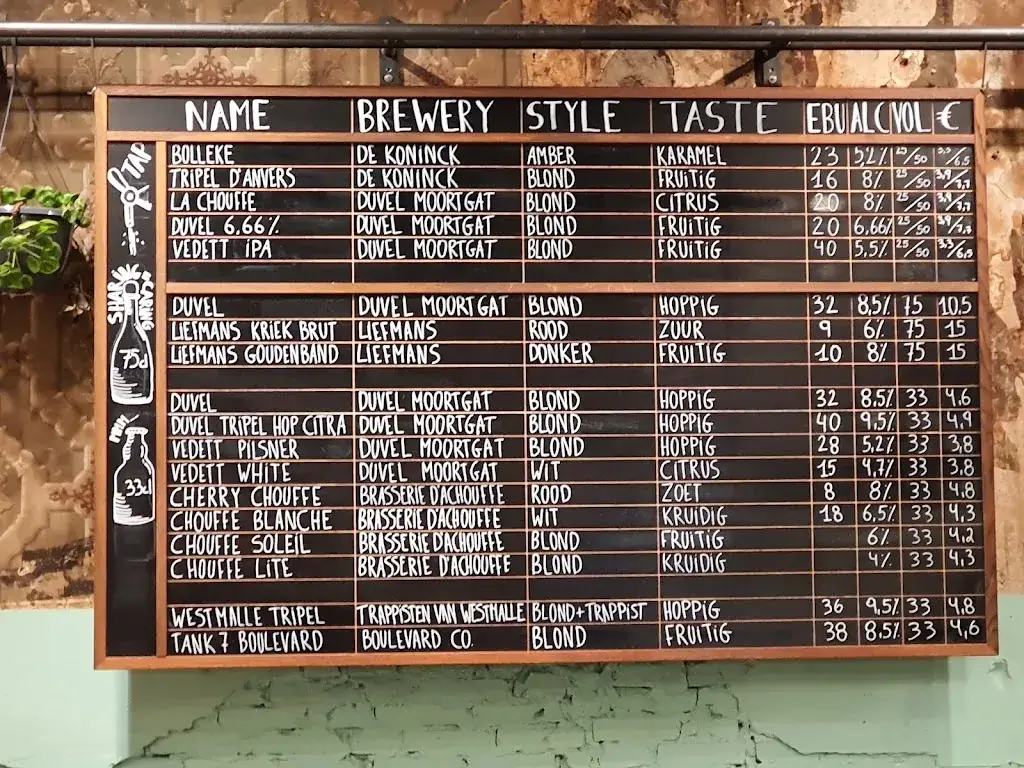 NAME BREWERY STYLE TASTE EBU ALC VOL €
TAP
BOLLEKE DE KONINCK AMBER KARAMEL 23 5,2% 25/50 3,3/6,5
TRIPEL D'ANVERS DE KONINCK BLOND FRUITIG 16 8% 25/50 3,9/7,7
LA CHOUFFE DUVEL MOORTGAT BLOND CITRUS 20 8% 25/50 3,9/7,7
DUVEL 6,66% DUVEL MOORTGAT BLOND FRUITIG 20 6,66% 25/50 3,9/7,7
VEDETT IPA DUVEL MOORTGAT BLOND FRUITIG 40 5,5% 25/50 3,3/6,5
SHARING = CARING
75cl
DUVEL DUVEL MOORTGAT BLOND HOPPIG 32 8,5% 75 10.5
LIEFMANS KRIEK BRUT LIEFMANS ROOD ZUUR 9 6% 75 15
LIEFMANS GOUDENBAND LIEFMANS DONKER FRUITIG 10 8% 75 15
33cl
DUVEL DUVEL MOORTGAT BLOND HOPPIG 32 8.5% 33 4.6
DUVEL TRIPEL HOP CITRA DUVEL MOORTGAT BLOND HOPPIG 40 9,5% 33 4,9
VEDETT PILSNER DUVEL MOORTGAT BLOND HOPPIG 28 5,2% 33 3,8
VEDETT WHITE DUVEL MOORTGAT WIT CITRUS 15 4,7% 33 3.8
CHERRY CHOUFFE BRASSERIE D'ACHOUFFE ROOD ZOET 8 8% 33 4.8
CHOUFFE BLANCHE BRASSERIE D'ACHOUFFE WIT KRUIDIG 18 6.5% 33 4,3
CHOUFFE SOLEIL BRASSERIE D'ACHOUFFE BLOND FRUITIG 6% 33 4.2
CHOUFFE LITE BRASSERIE D'ACHOUFFE BLOND KRUIDIG 4% 33 4,3
WESTMALLE TRIPEL TRAPPISTEN VAN WESTMALLE BLOND+TRAPPIST HOPPIG 36 9,5% 33 4.8
TANK 7 BOULEVARD BOULEVARD CO. BLOND FRUITIG 38 8.5% 33 4,6